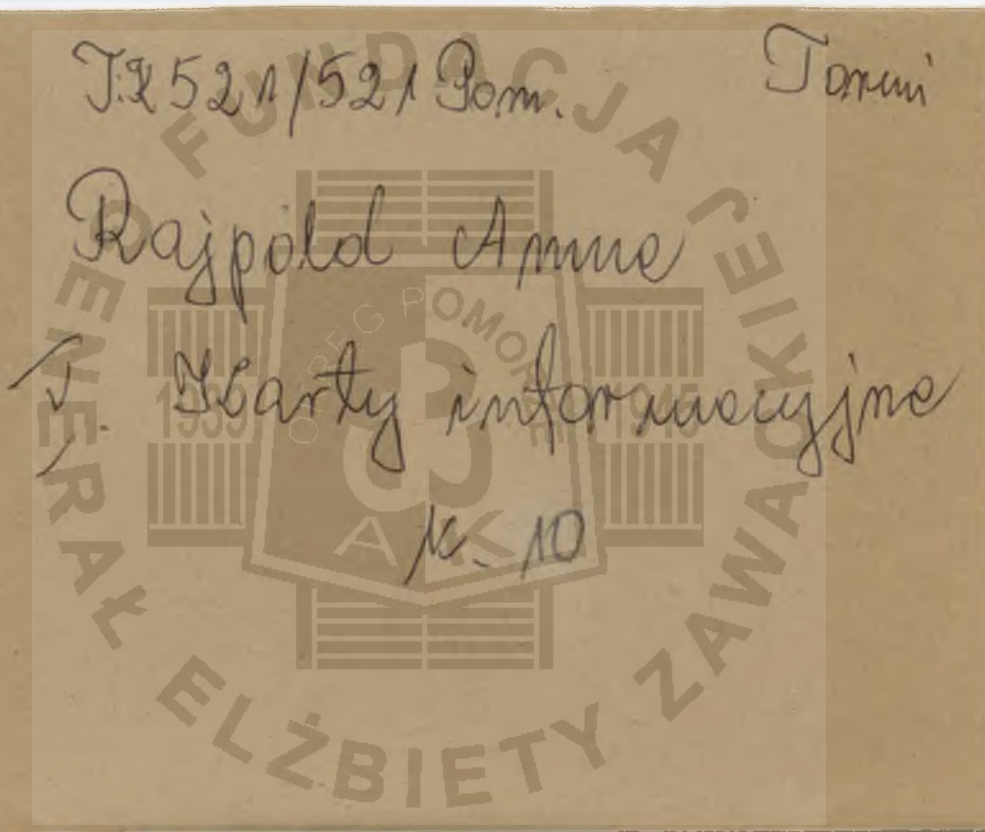 521/521 Pom. Toruń
Rajpold Anna
V. Karty informacyjne
k. 10
FUNDACJA GENERAŁ ELŻBIETY ZAWACKIEJ
OKRĘG POMORZE
1939 1945
AK